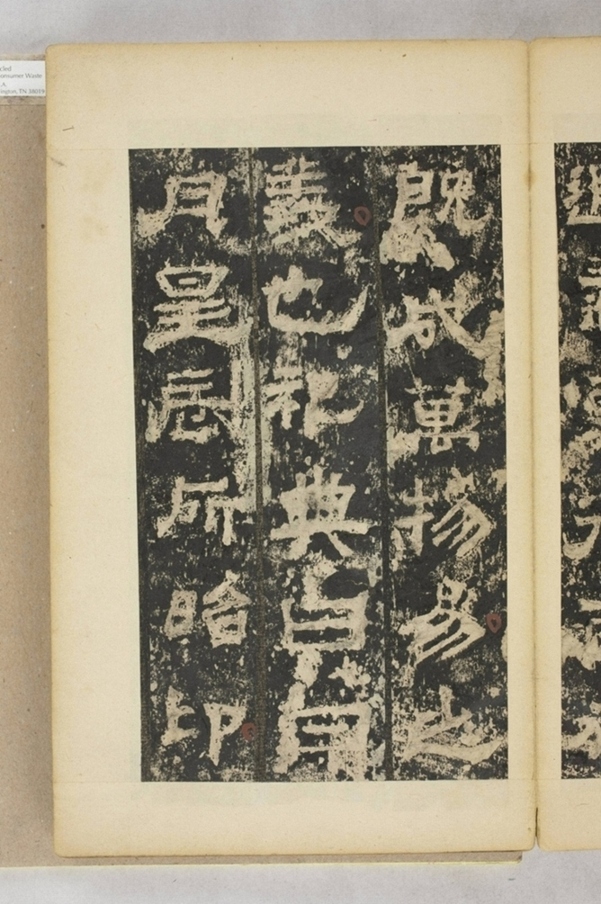 既成萬物易之
義也祀典曰日
月星辰所昭卬
Waste
TN 38019